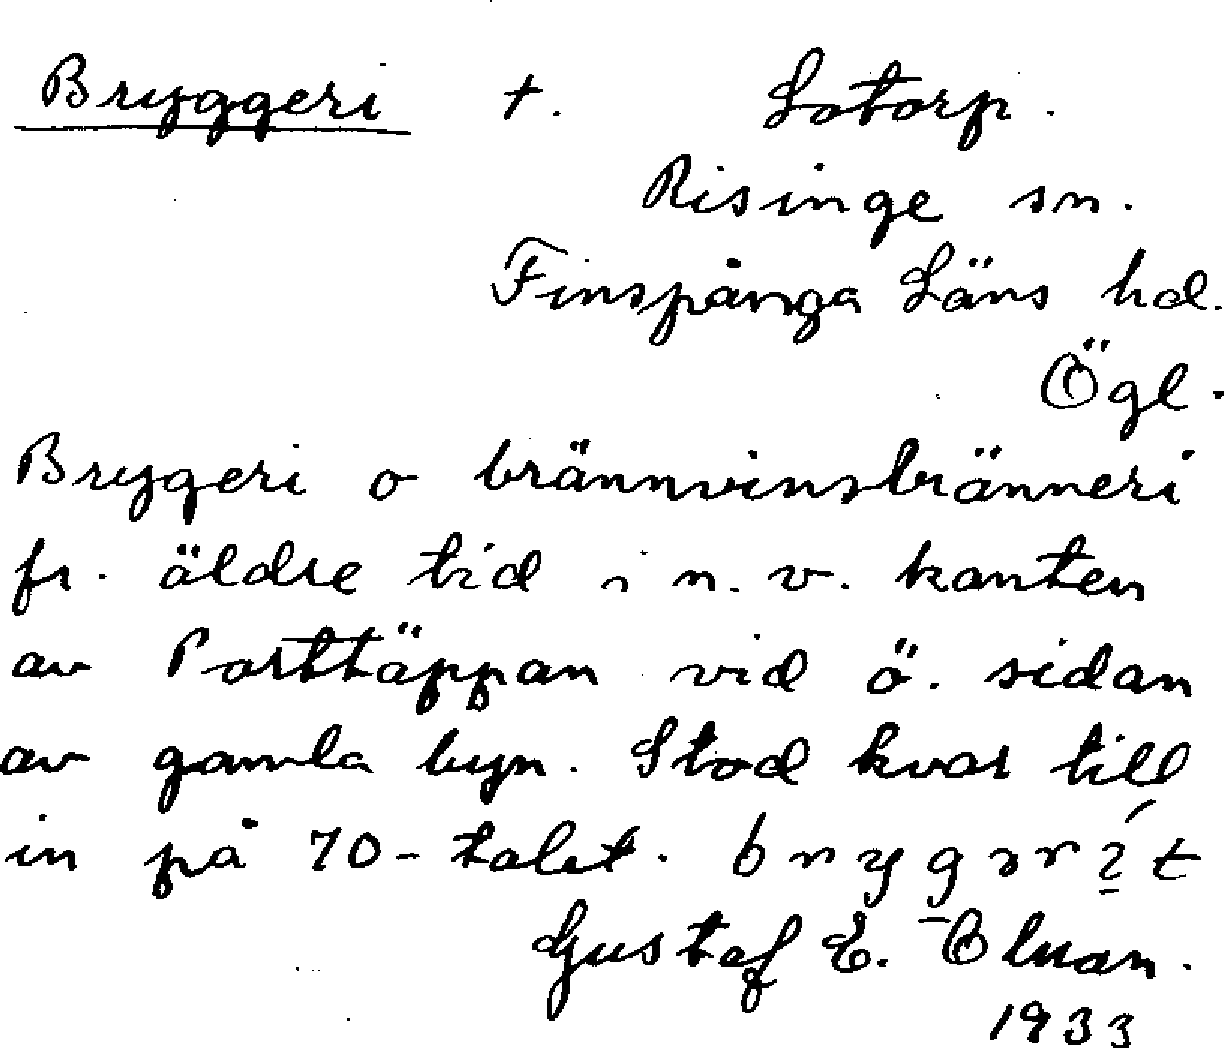 Bryggeri t. Lotorp.
Risinge sn.
Finspånga Läns hd.
Ögl.
Bryggeri o brännvinsbränneri
fr. äldre tid i n. v. kanten
av Porttäppan vid ö. sidan
av gamla byn. Stod kvar till
in på 70-talet.
Gustaf E.
1933